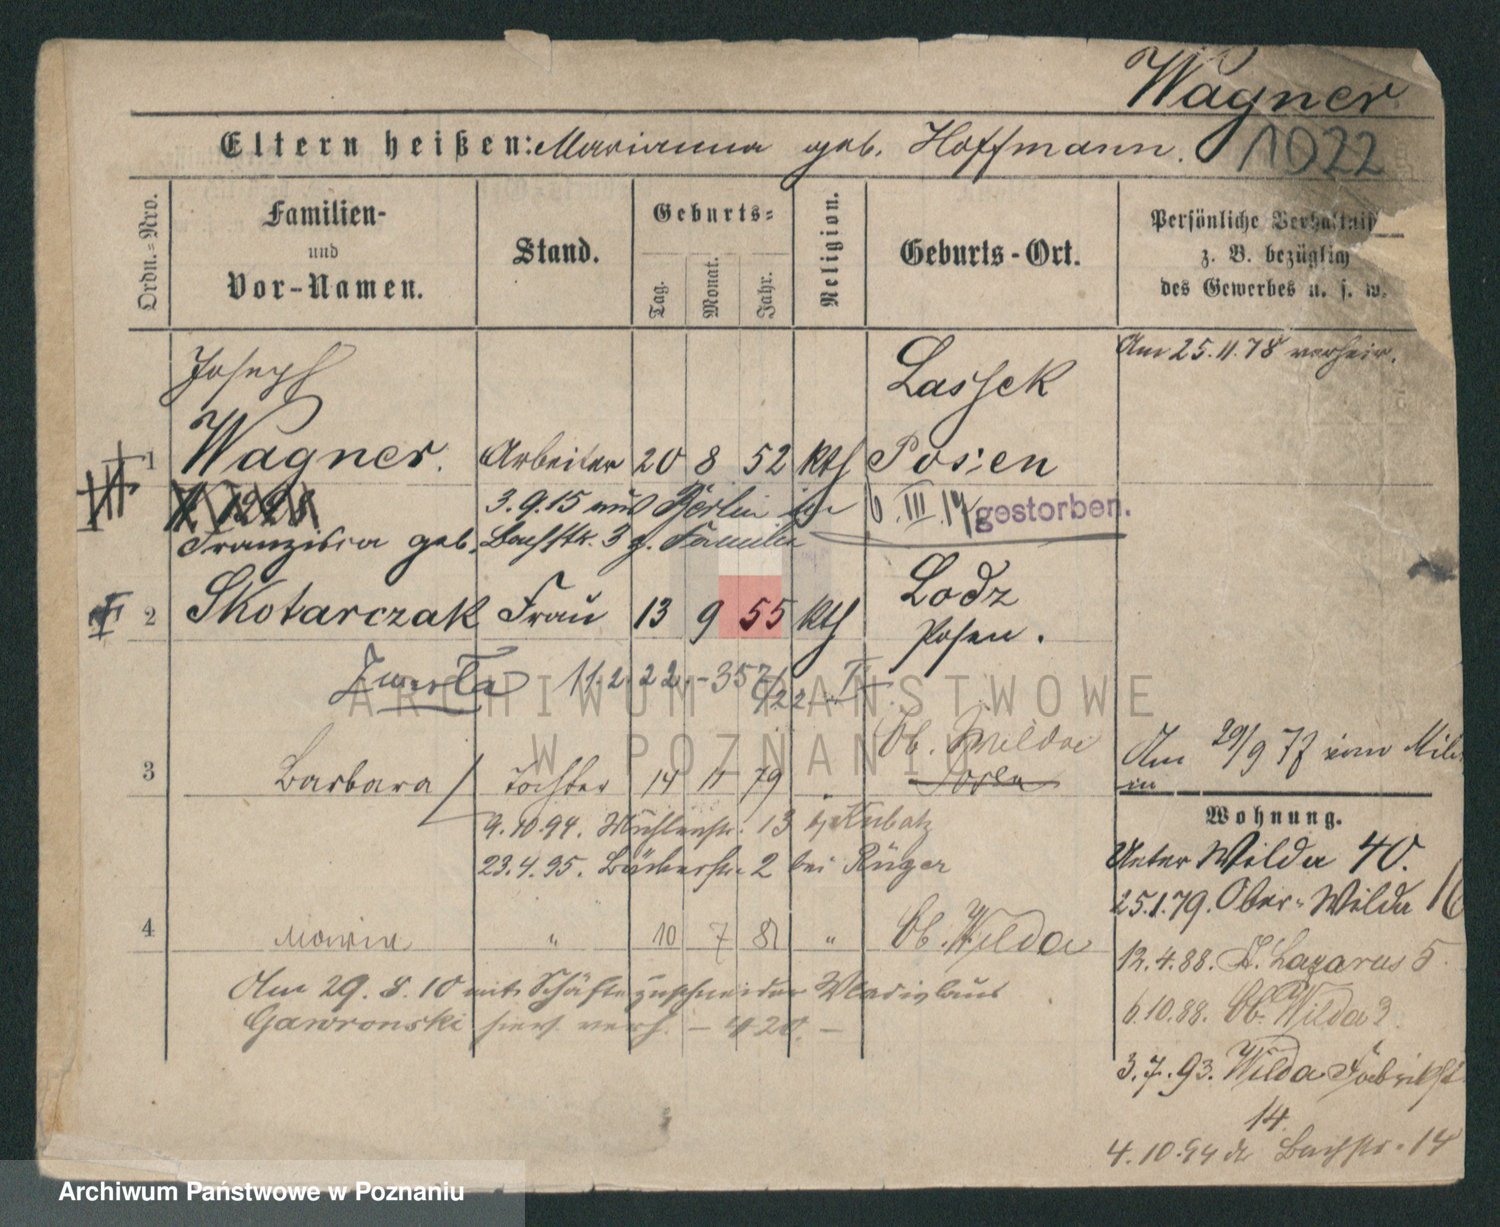 Wagner
1022
Eltern heißen: Marianna geb. Hoffmann.
Ordn.-Nro.
Familien-
und
Vor-Namen.
Stand.
Geburts-
Tag.
Monat.
Jahr.
Religion.
Geburts-Ort.
Persönliche Verhältniss
z. B. bezüglich
des Gewerbes u. s. w.
Joseph
Lassek
Am 25.11.78 verheir.
1 Wagner. Arbeiter 20 8 52 kth Posen
3.9.15 aus Berlin
6 III 14 gestorben.
Franziska geb. Bachstr. 3 z. Familie
2 Skotarczak Frau 13 9 55 kth Lodz
Posen.
Zmarła 11.2.22.-357/22
Ob. Wilda
Am 29/9 77 vom Mili
in
3 Barbara Tochter 14 11 79
9.10.94. Mühlenstr. 13 b. Kubatz
23.4.95. Bäckerstr. 2 bei Rüger
4 Maria " 10 7 81 " Ob. Wilda
Am 29.8.10 mit Schäftezuschneider Wladislaus
Gawronski hier verh. - 420. -
Wohnung.
Unter Wilda 40.
25.1.79. Ober-Wilda 16
12.4.88. St. Lazarus 5.
6.10.88. Ob. Wilda 3.
3.7.93. Wilda Fabrikst
14.
4.10.94 Bachstr. 14
ARCHIWUM PAŃSTWOWE
W POZNANIU
Archiwum Państwowe w Poznaniu